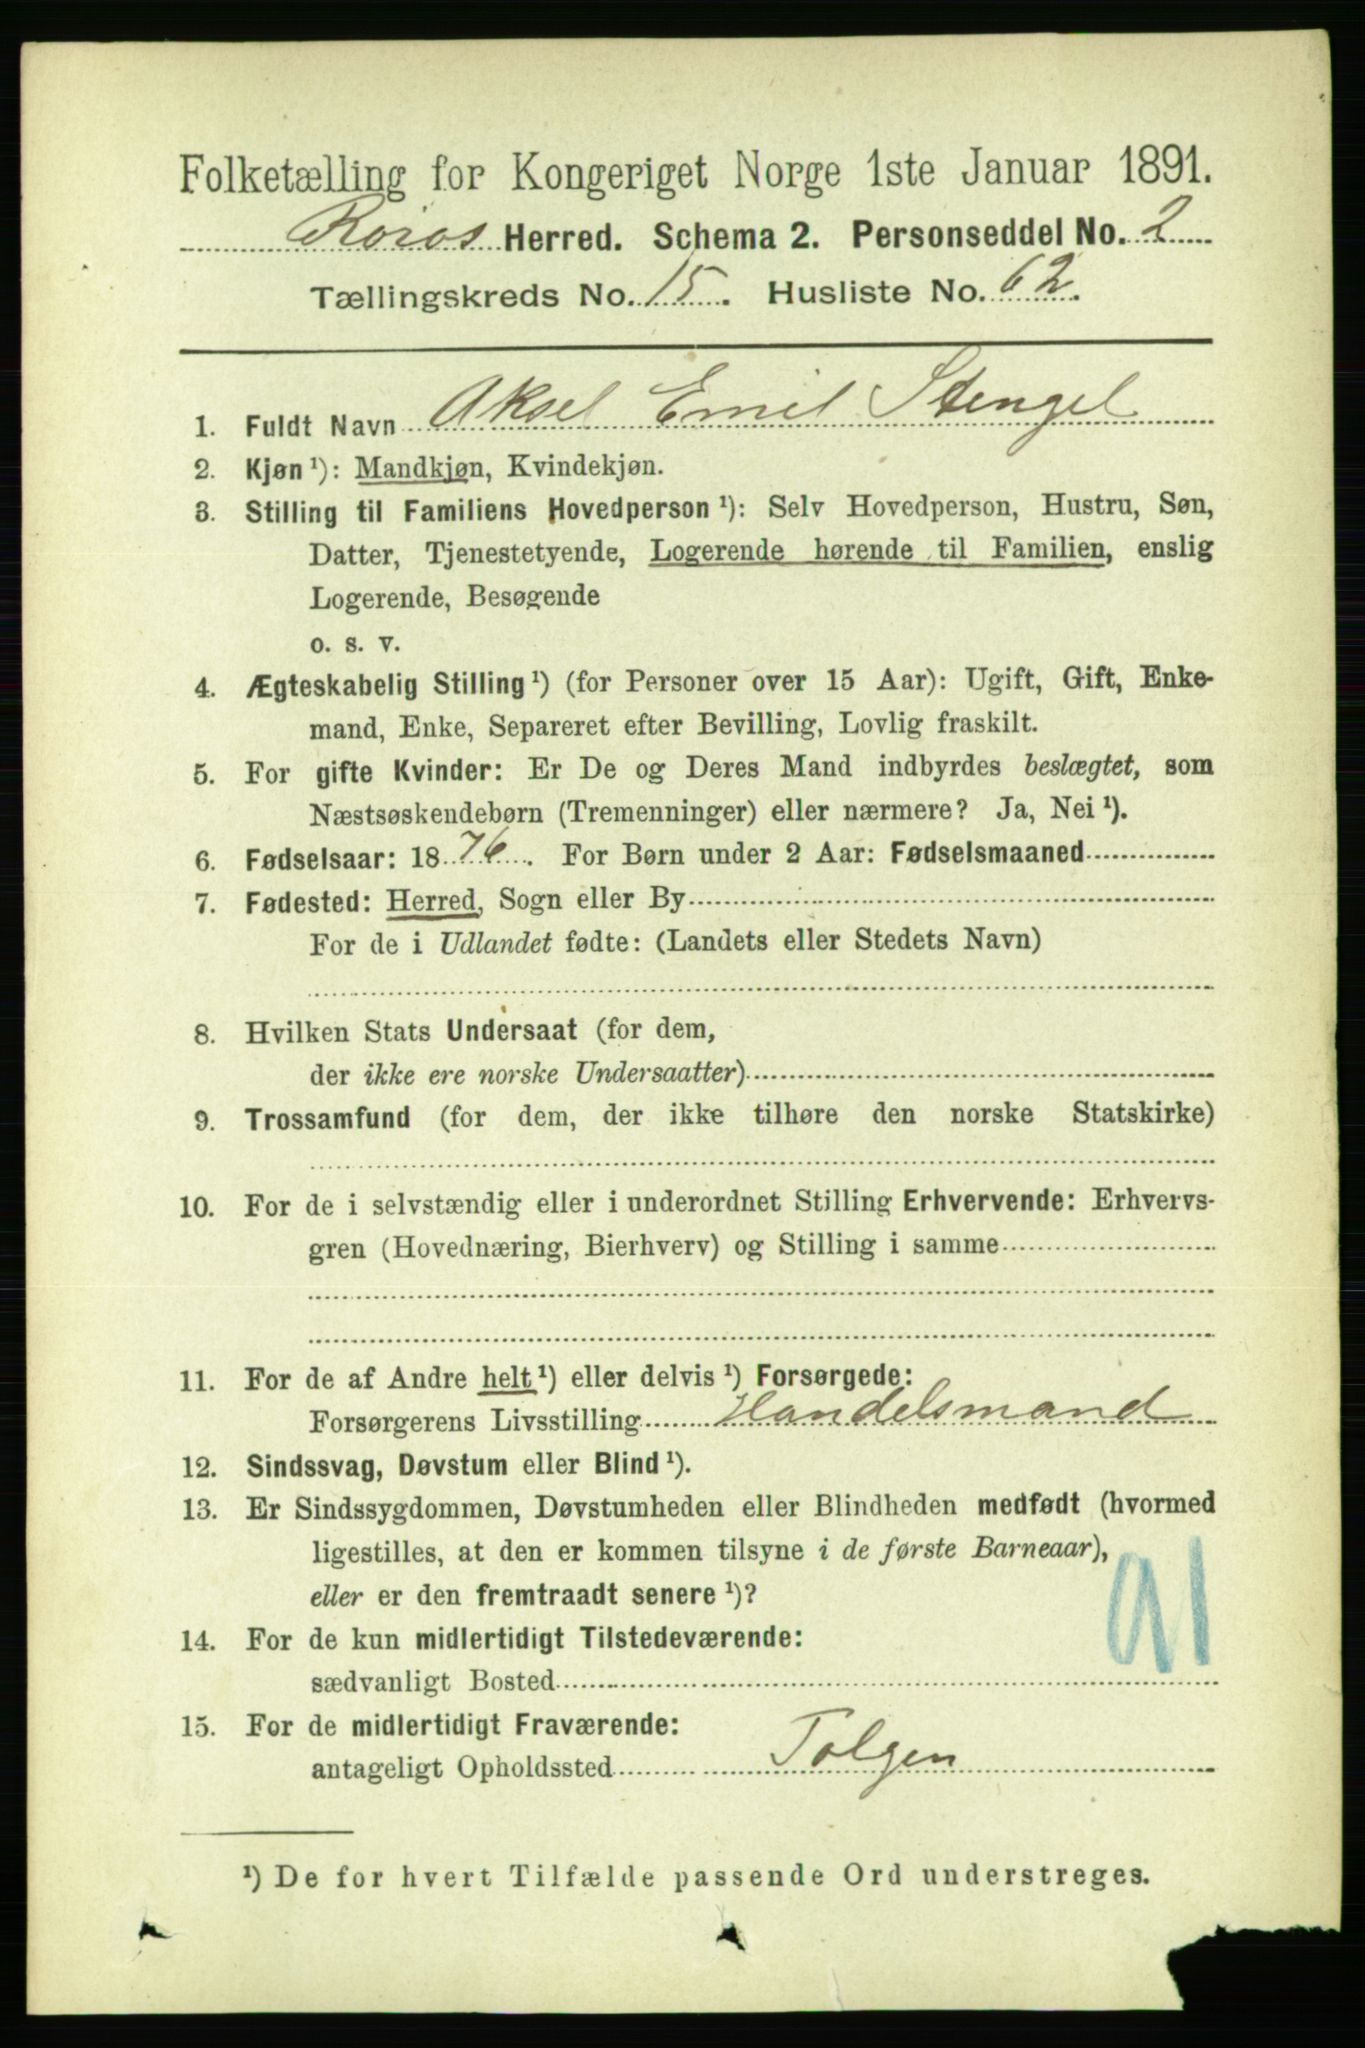 Folketælling for Kongeriget Norge 1ste Januar 1891.
Røros Herred. Schema 2. Personseddel No. 2
Tællingskreds No. 15. Husliste No. 62.
1. Fuldt Navn Aksel Emil Stengel
2. Kjøn ¹): Mandkjøn, Kvindekjøn.
3. Stilling til Familiens Hovedperson ¹): Selv Hovedperson, Hustru, Søn,
Datter, Tjenestetyende, Logerende hørende til Familien, enslig
Logerende, Besøgende
o. s. v.
4. Ægteskabelig Stilling ¹) (for Personer over 15 Aar): Ugift, Gift, Enke-
mand, Enke, Separeret efter Bevilling, Lovlig fraskilt.
5. For gifte Kvinder: Er De og Deres Mand indbyrdes beslægtet, som
Næstsøskendebørn (Tremenninger) eller nærmere? Ja, Nei ¹).
6. Fødselsaar: 1876. For Børn under 2 Aar: Fødselsmaaned
7. Fødested: Herred, Sogn eller By
For de i Udlandet fødte: (Landets eller Stedets Navn)
8. Hvilken Stats Undersaat (for dem,
der ikke ere norske Undersaatter)
9. Trossamfund (for dem, der ikke tilhøre den norske Statskirke)
10. For de i selvstændig eller i underordnet Stilling Erhvervende: Erhvervs-
gren (Hovednæring, Bierhverv) og Stilling i samme
11. For de af Andre helt ¹) eller delvis ¹) Forsørgede:
Forsørgerens Livsstilling Handelsmand
12. Sindssvag, Døvstum eller Blind ¹).
13. Er Sindssygdommen, Døvstumheden eller Blindheden medfødt (hvormed
ligestilles, at den er kommen tilsyne i de første Barneaar),
eller er den fremtraadt senere ¹)?
91
14. For de kun midlertidigt Tilstedeværende:
sædvanligt Bosted
15. For de midlertidigt Fraværende:
antageligt Opholdssted Tolgen
¹) De for hvert Tilfælde passende Ord understreges.